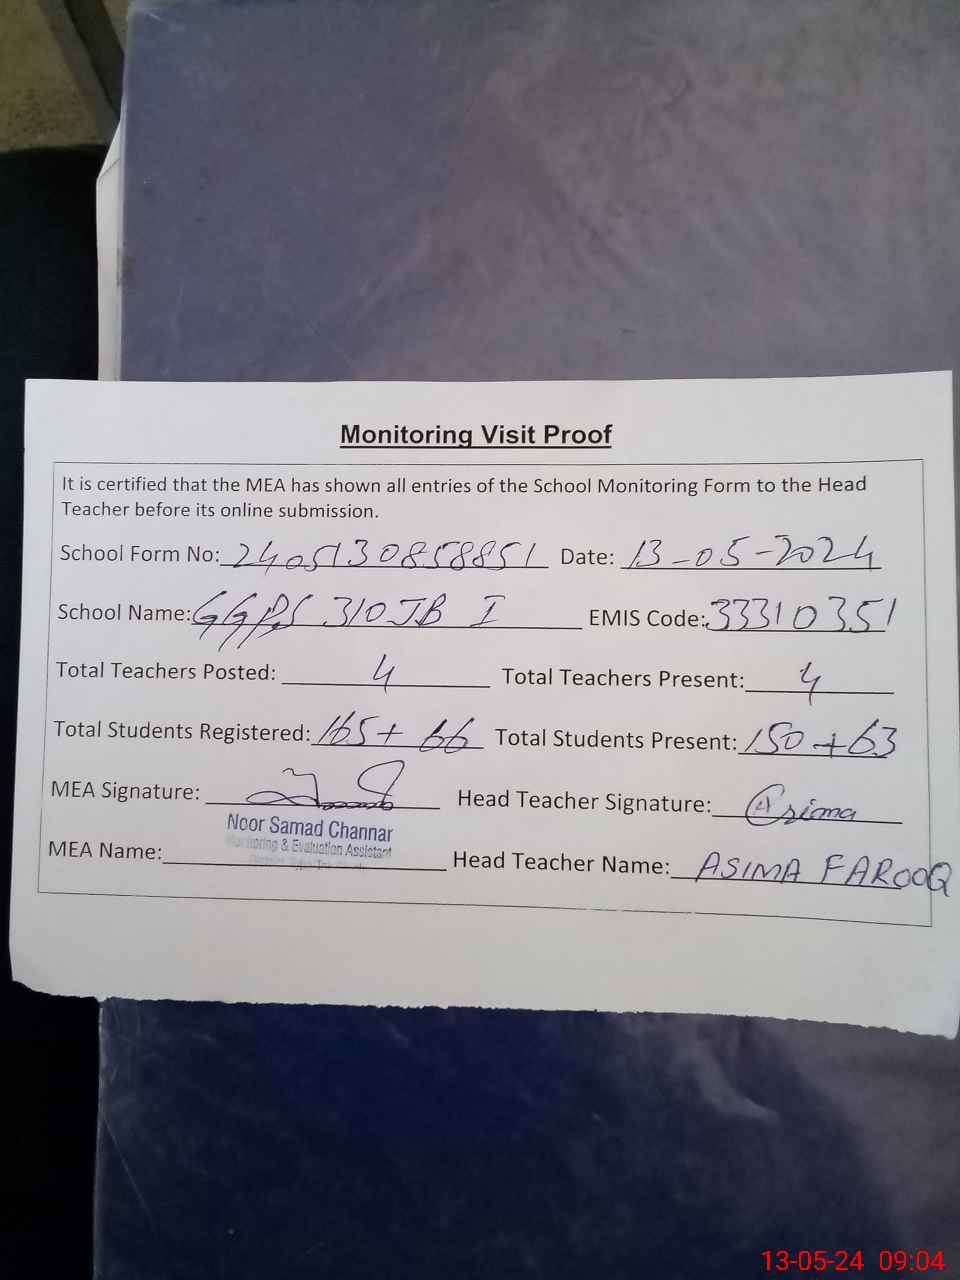 Monitoring Visit Proof
It is certified that the MEA has shown all entries of the School Monitoring Form to the Head
Teacher before its online submission.
School Form No: 2405130858851 Date: 13-05-2024
School Name: GGPS 310 JB I EMIS Code: 33310351
Total Teachers Posted: 4 Total Teachers Present: 4
Total Students Registered: 165+66 Total Students Present: 150+63
MEA Signature: Head Teacher Signature: Asima
Noor Samad Channar
Monitoring & Evaluation Assistant
MEA Name: Head Teacher Name: ASIMA FAROOQ
13-05-24 09:04